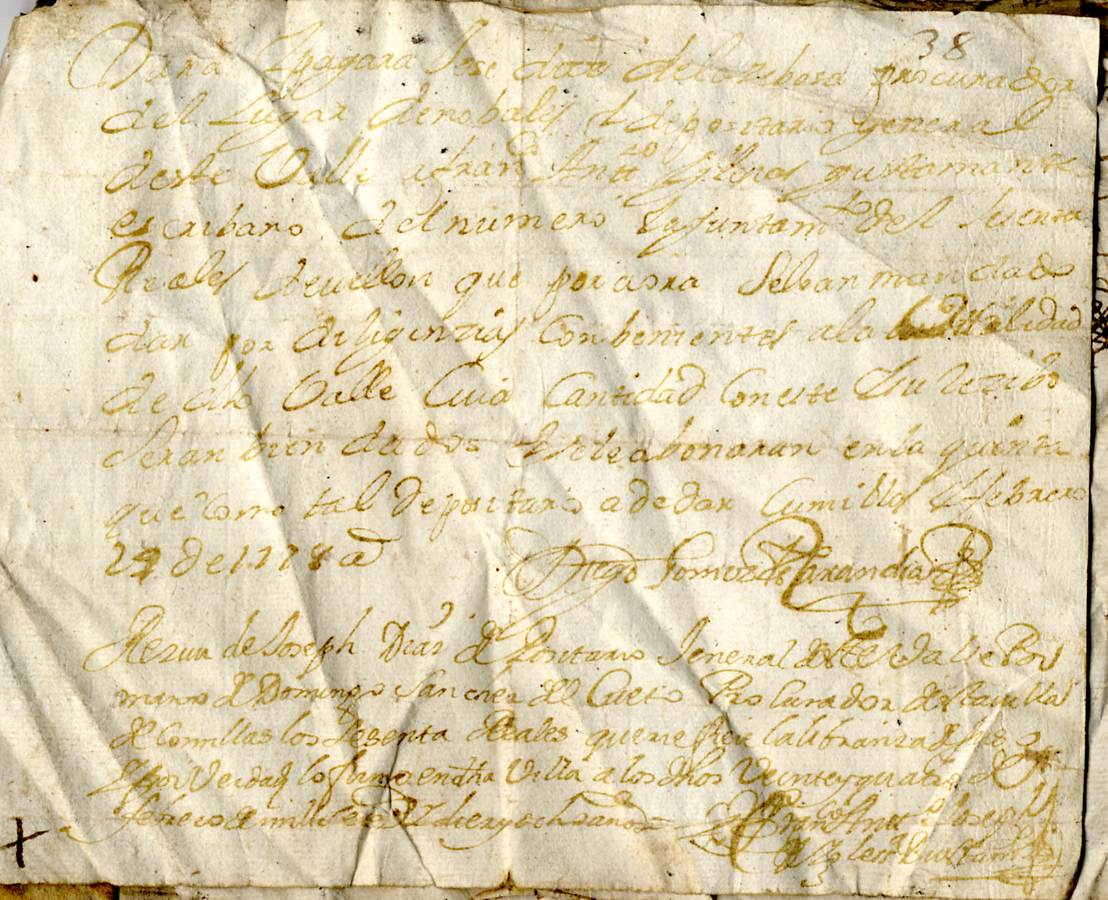 38
Dara Ypagara José díaz dela rebosa procurador
del Lugar de nobales i depositario general
deste Valle afran.co Ant.o Yglesias bustamante
escribano del numero Layuntam.to del Sesenta
Reales de vellon que por aora Selean mandado
dar por diligenzias Conbenientes ala utilidad
de dho Valle Cuia Cantidad Coneste Ysu rezibo
Seran bien dados Yseleabonaran enla quenta
que como tal depositario adedar Comillas Yfebrero
24 de 1718 a
Diego Gomez de Carandia
Rezivi de Joseph Díaz Depositario Jeneral deste Valle Por
mano de Domingo Sanchez del Cueto Procurador desta villa
de Comillas los Sesenta Reales que refiere lalibranza de
Ypor Verdad lo firme en dha Villa a los dhos Veinteyquatro de
febrero de mill Setez.s diezyocho años =
Fran.co Ant.o
Yglesias Bustam.te